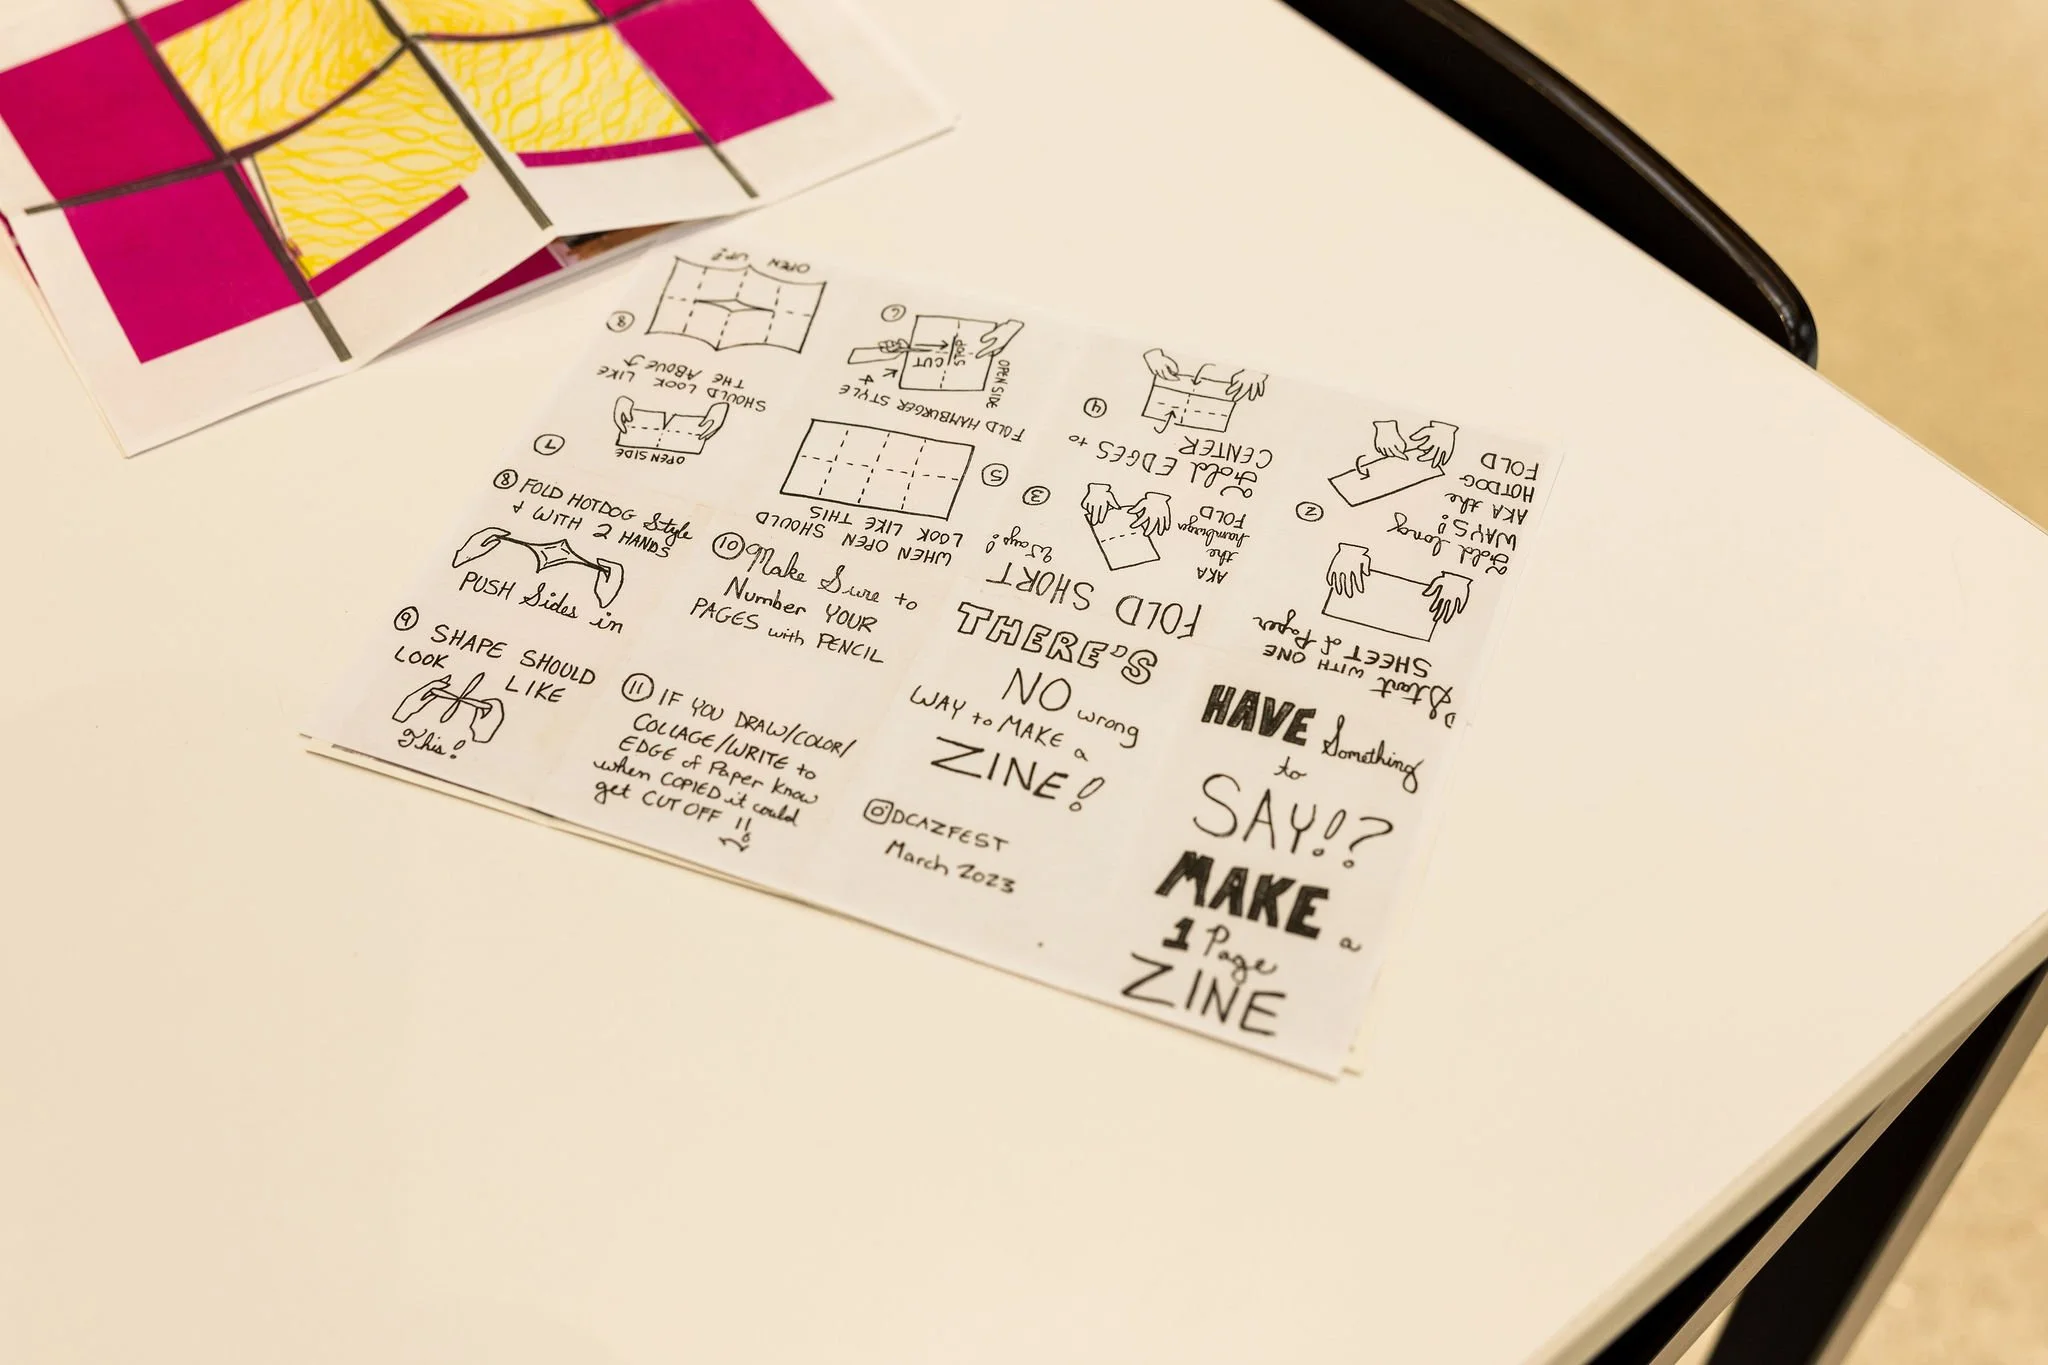 HAVE Something
to
SAY!?
MAKE a
1 Page
ZINE
Start WITH ONE
SHEET of Paper
2 Fold long
WAYS!
AKA the
HOTDOG
FOLD
FOLD SHORT
Ways!
3
AKA
the
hamburger
FOLD
4 Fold EDGES to
CENTER
WHEN OPEN SHOULD
LOOK LIKE THIS
5
FOLD HAMBURGER STYLE
&
OPEN SIDE
CUT
STOP
6
7
OPEN SIDE
SHOULD LOOK LIKE
THE ABOVE
8
OPEN UP!
8 FOLD HOTDOG Style
& WITH 2 HANDS
PUSH Sides in
9 SHAPE SHOULD
LOOK LIKE
This!
10 Make Sure to
Number YOUR
PAGES with PENCIL
11 IF YOU DRAW/COLOR/
COLLAGE/WRITE to
EDGE of Paper Know
when COPIED it could
get CUT OFF !!
THERE'S
NO wrong
WAY to MAKE a
ZINE!
DCAZFEST
March 2023